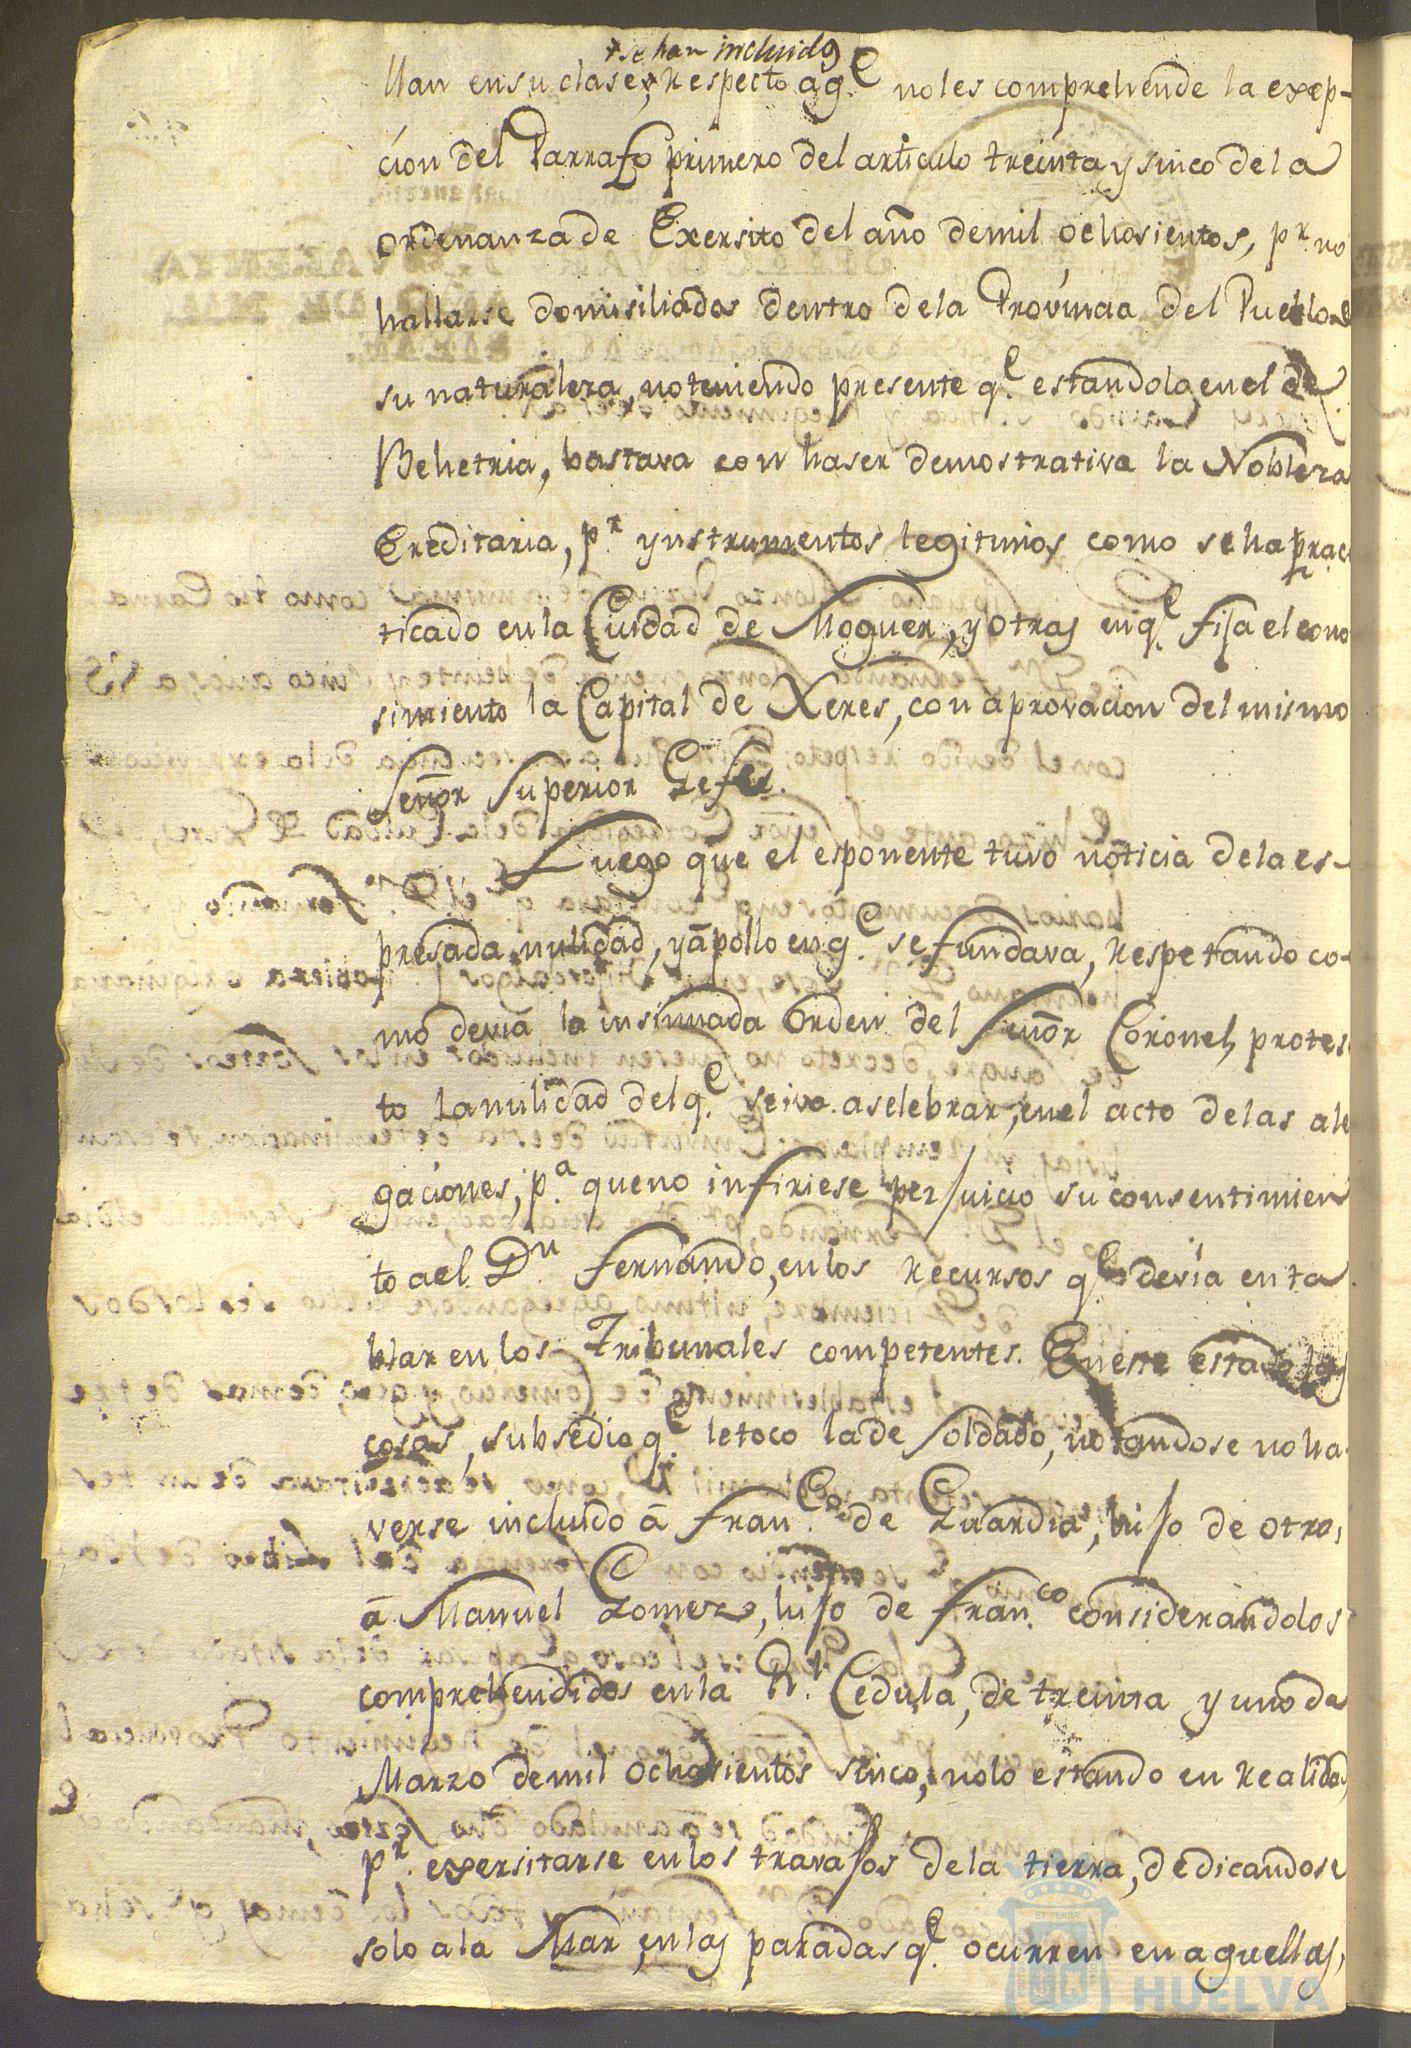 +se han incluido
llan en su clase, + respecto a q.e no les comprehende la exep-
cion del Parrafo primero del articulo treinta y sinco de la
ordenanza de Exersito del año de mil ochosientos, p.r no
hallarse domisiliados dentro de la Provincia del Pueblo de
su naturaleza, no teniendo presente q.e estandolo en el de
Behetria, bastava con haser demostrativa la Nobleza
Ereditaria, p.r ynstrumentos legitimos como se ha prac
ticado en la Ciudad de Moguer, y otras en q.e fija el cono
simiento la Capital de Xeres, con aprovacion del mismo
Señor Superior Gefe.
Luego que el esponente tuvo noticia de la es-
presada nulidad, y apollo en q.e se fundava, respetando co-
mo devia la insinuada orden del Señor Coronel, protes
to la nulidad del q.e se iva a selebrar, en el acto de las ale
gaciones, p.a que no infiriese perjuicio su consentimien
to a el D.n Fernando, en los recursos q.e devia enta
blar en los Tribunales competentes. En este estado las
cosas, subsedio q.e le toco la de Soldado, notandose no ha-
verse incluido á Fran.co de Guardia, hijo de otro,
á Manuel Gomez, hijo de Fran.co considerandolos
comprehendidos en la R.l Cedula, de treinta y uno de
Marzo de mil ochosientos sinco, no lo estando en realidad,
p.r exersitarse en los travajos de la tierra, dedicandose
solo a la Mar, en las paradas q.e ocurren en aquellas,
HUELVA